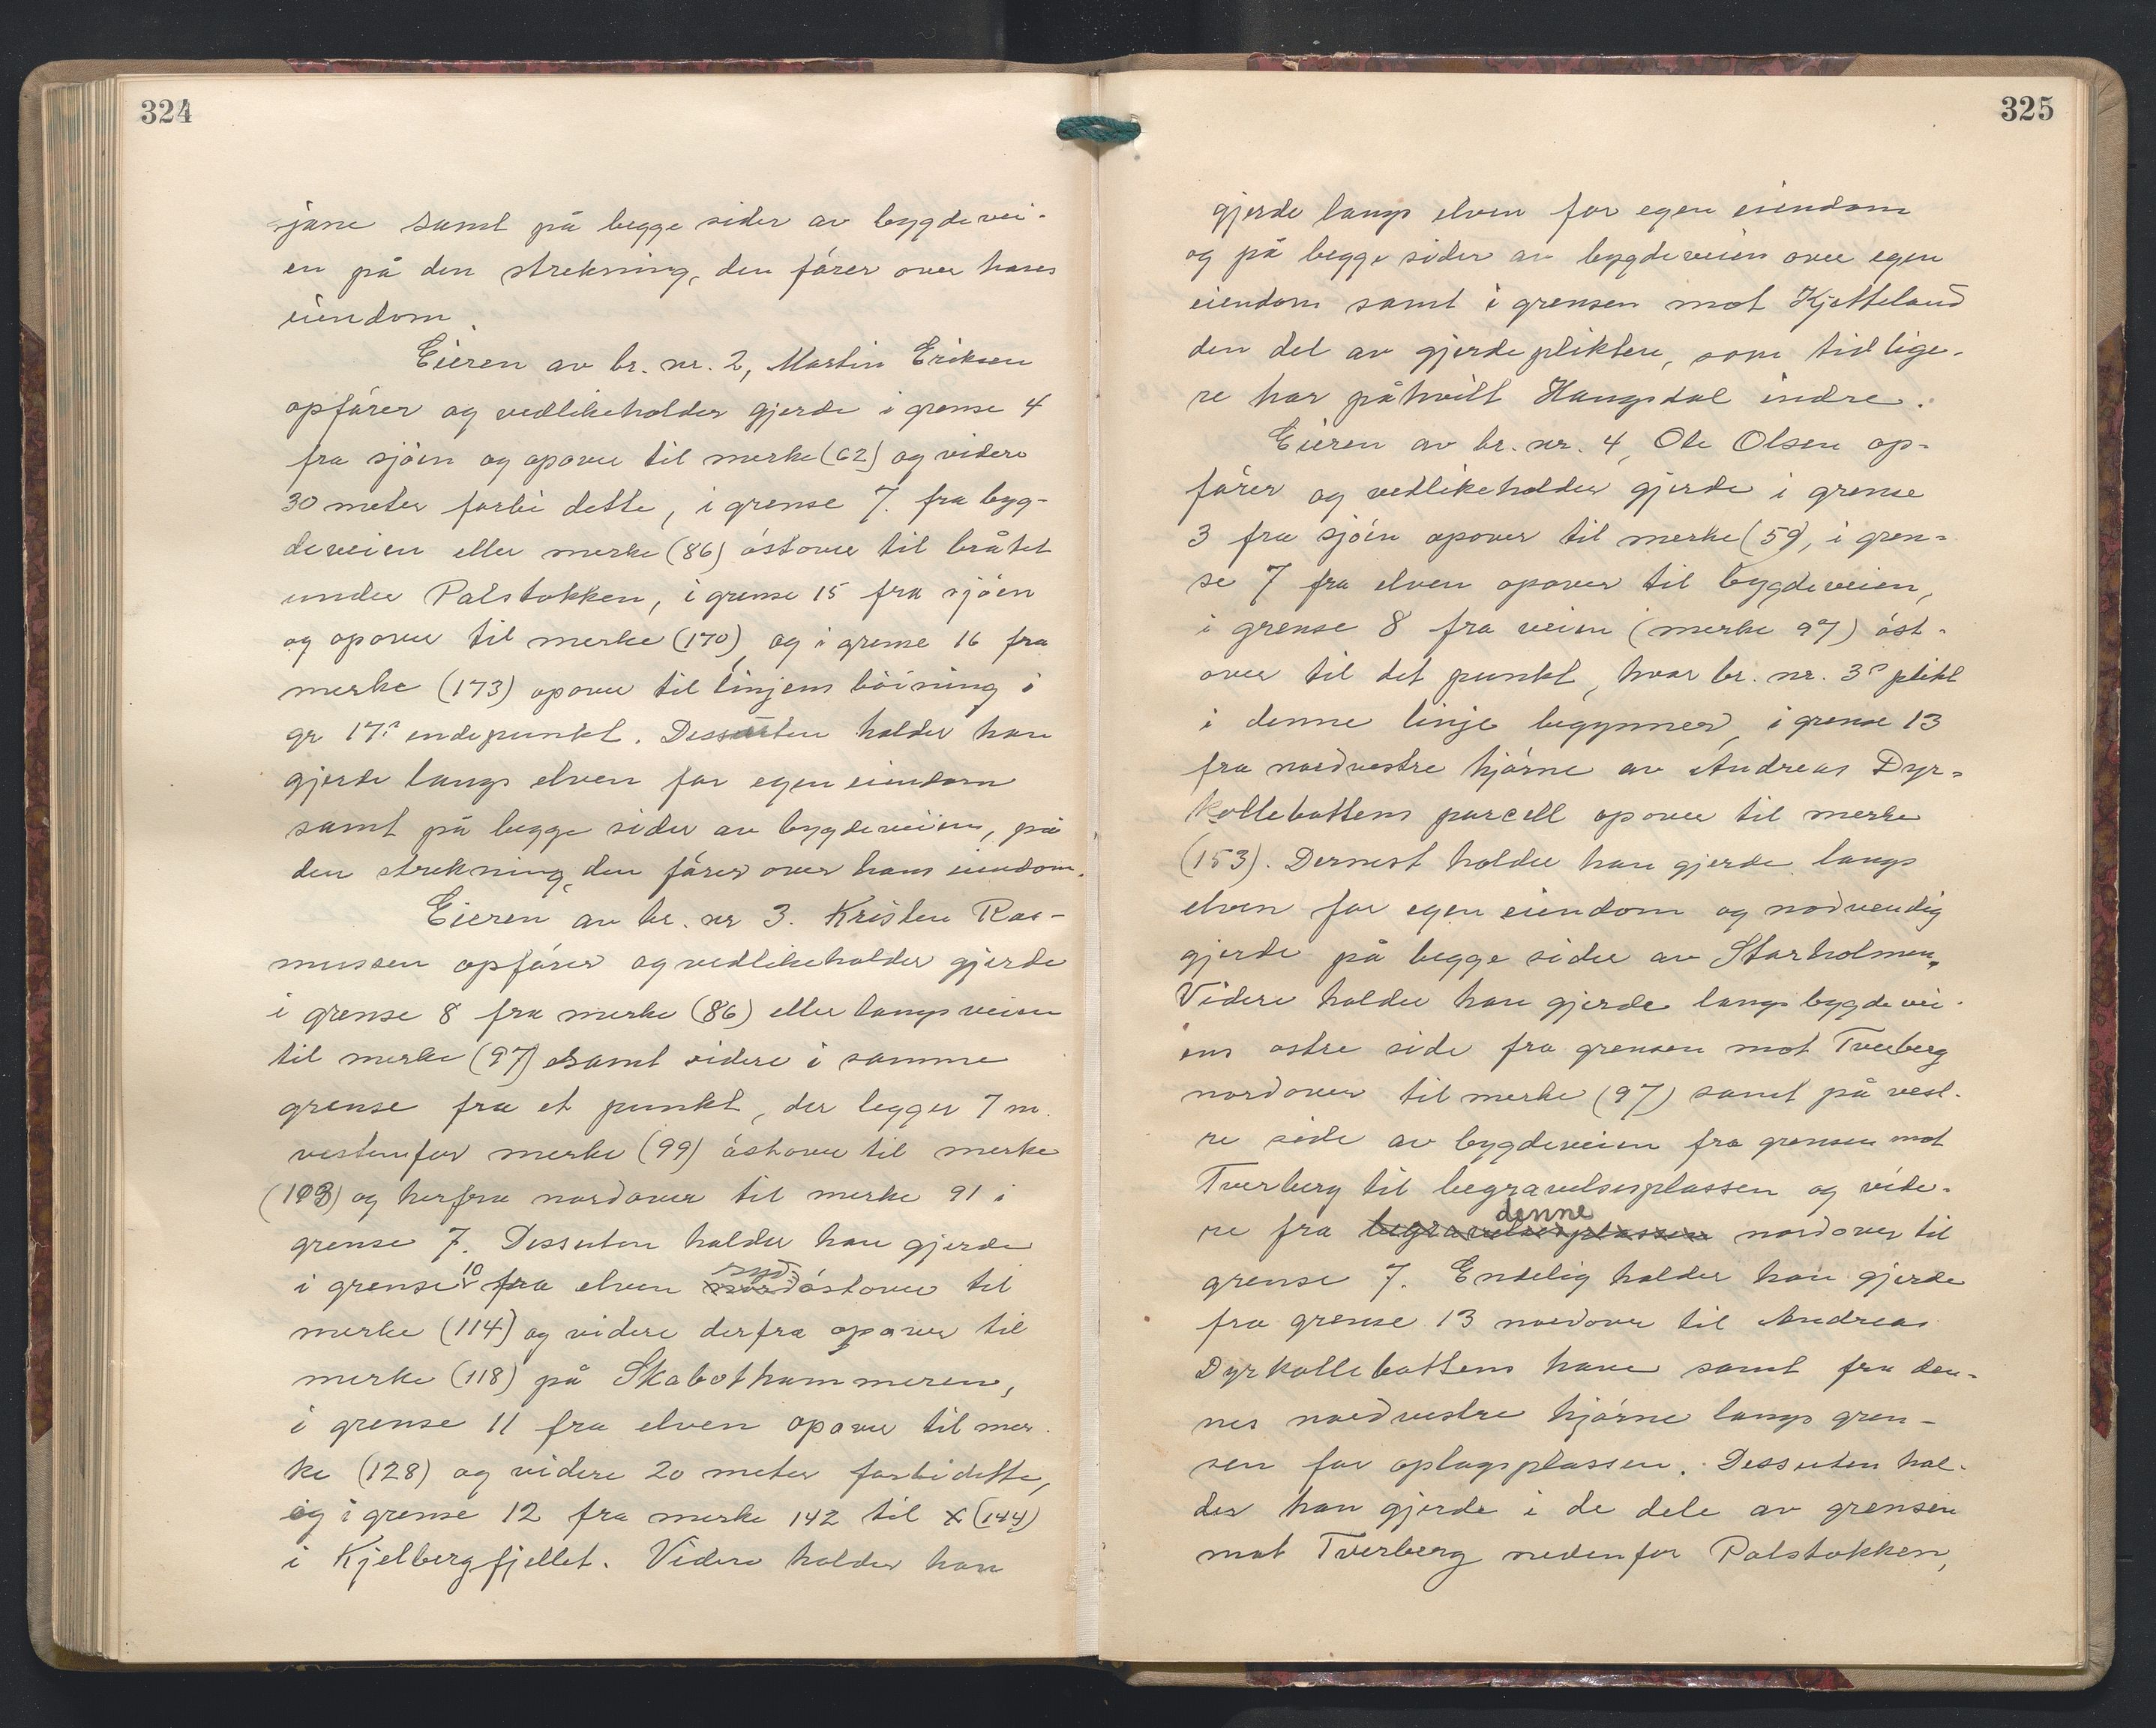 324
sjøne samt på begge sider av bygdevei-
en på den strekning, den fører over hans
eiendom.
Eieren av br. nr. 2, Martin Eriksen
opfører og vedlikeholder gjerde i grense 4
fra sjøen og opover til merke (62) og videre
30 meter forbi dette, i grense 7. fra byg-
deveien eller merke (86) østover til bråtet
under Palstokken, i grense 15 fra sjøen
og opover til merke (170), og i grense 16 fra
merke (173) opover til linjens bøining i
gr 17s endepunkt. Dessuten holder han
gjerde langs elven for egen eiendom
samt på begge sider av bygdeveien, på
den strekning, den fører over hans eiendom.
Eieren av br. nr 3. Kristen Ras-
mussen opfører og vedlikeholder gjerde
i grense 8 fra merke (86) eller langs veien
til merke (97) samt videre i samme
grense fra et punkt, der legger 7 m.
vestenfor merke (99) østover til merke
(103) og herfra nordover til merke 91 i
grense 7. Dessuten holder han gjerde
i grense 10 fra elven nord syd-østover til
merke (114) og videre derfra opover til
merke (118) på Skabothammeren,
i grense 11 fra elven opover til mer-
ke (128) og videre 20 meter forbi dette,
og i grense 12 fra merke 142 til x (144)
i Kjelbergfjellet. Videre holder han
325
gjerde langs elven for egen eiendom
og på begge sider av bygdeveien over egen
eiendom samt i grensen mot Kjetteland
den del av gjerdeplikten, som tidlige-
re har påhvilt Haugsdal indre.
Eieren av br. nr. 4, Ole Olsen op-
fører og vedlikeholder gjerde i grense
3 fra sjøen opover til merke (59), i gren-
se 7 fra elven opover til bygdeveien,
i grense 8 fra veien (merke 97) øst-
over til det punkt, hvor br. nr. 3s plikt
i denne linje begynner, i grense 13
fra nordvestre hjørne av Andreas Dyr-
kollebottens parcell opover til merke
(153). Dernest holder han gjerde langs
elven for egen eiendom og nødvendig
gjerde på begge sider av Storholmen.
Videre holder han gjerde langs bygdevei-
ens østre side fra grensen mot Tverberg
nordover til merke (97) samt på vest-
re side av bygdeveien fra grensen mot
Tverberg til begravelsesplassen og vide-
re fra begravelsesplassen denne nordover til
grense 7. Endelig holder han gjerde
fra grense 13 nordover til Andreas
Dyrkollebottens have samt fra den-
nes nordvestre hjørne langs gren-
sen for oplagsplassen. Dessuten hol-
der han gjerde i de dele av grensen
mot Tverberg nedenfor Palstokken,